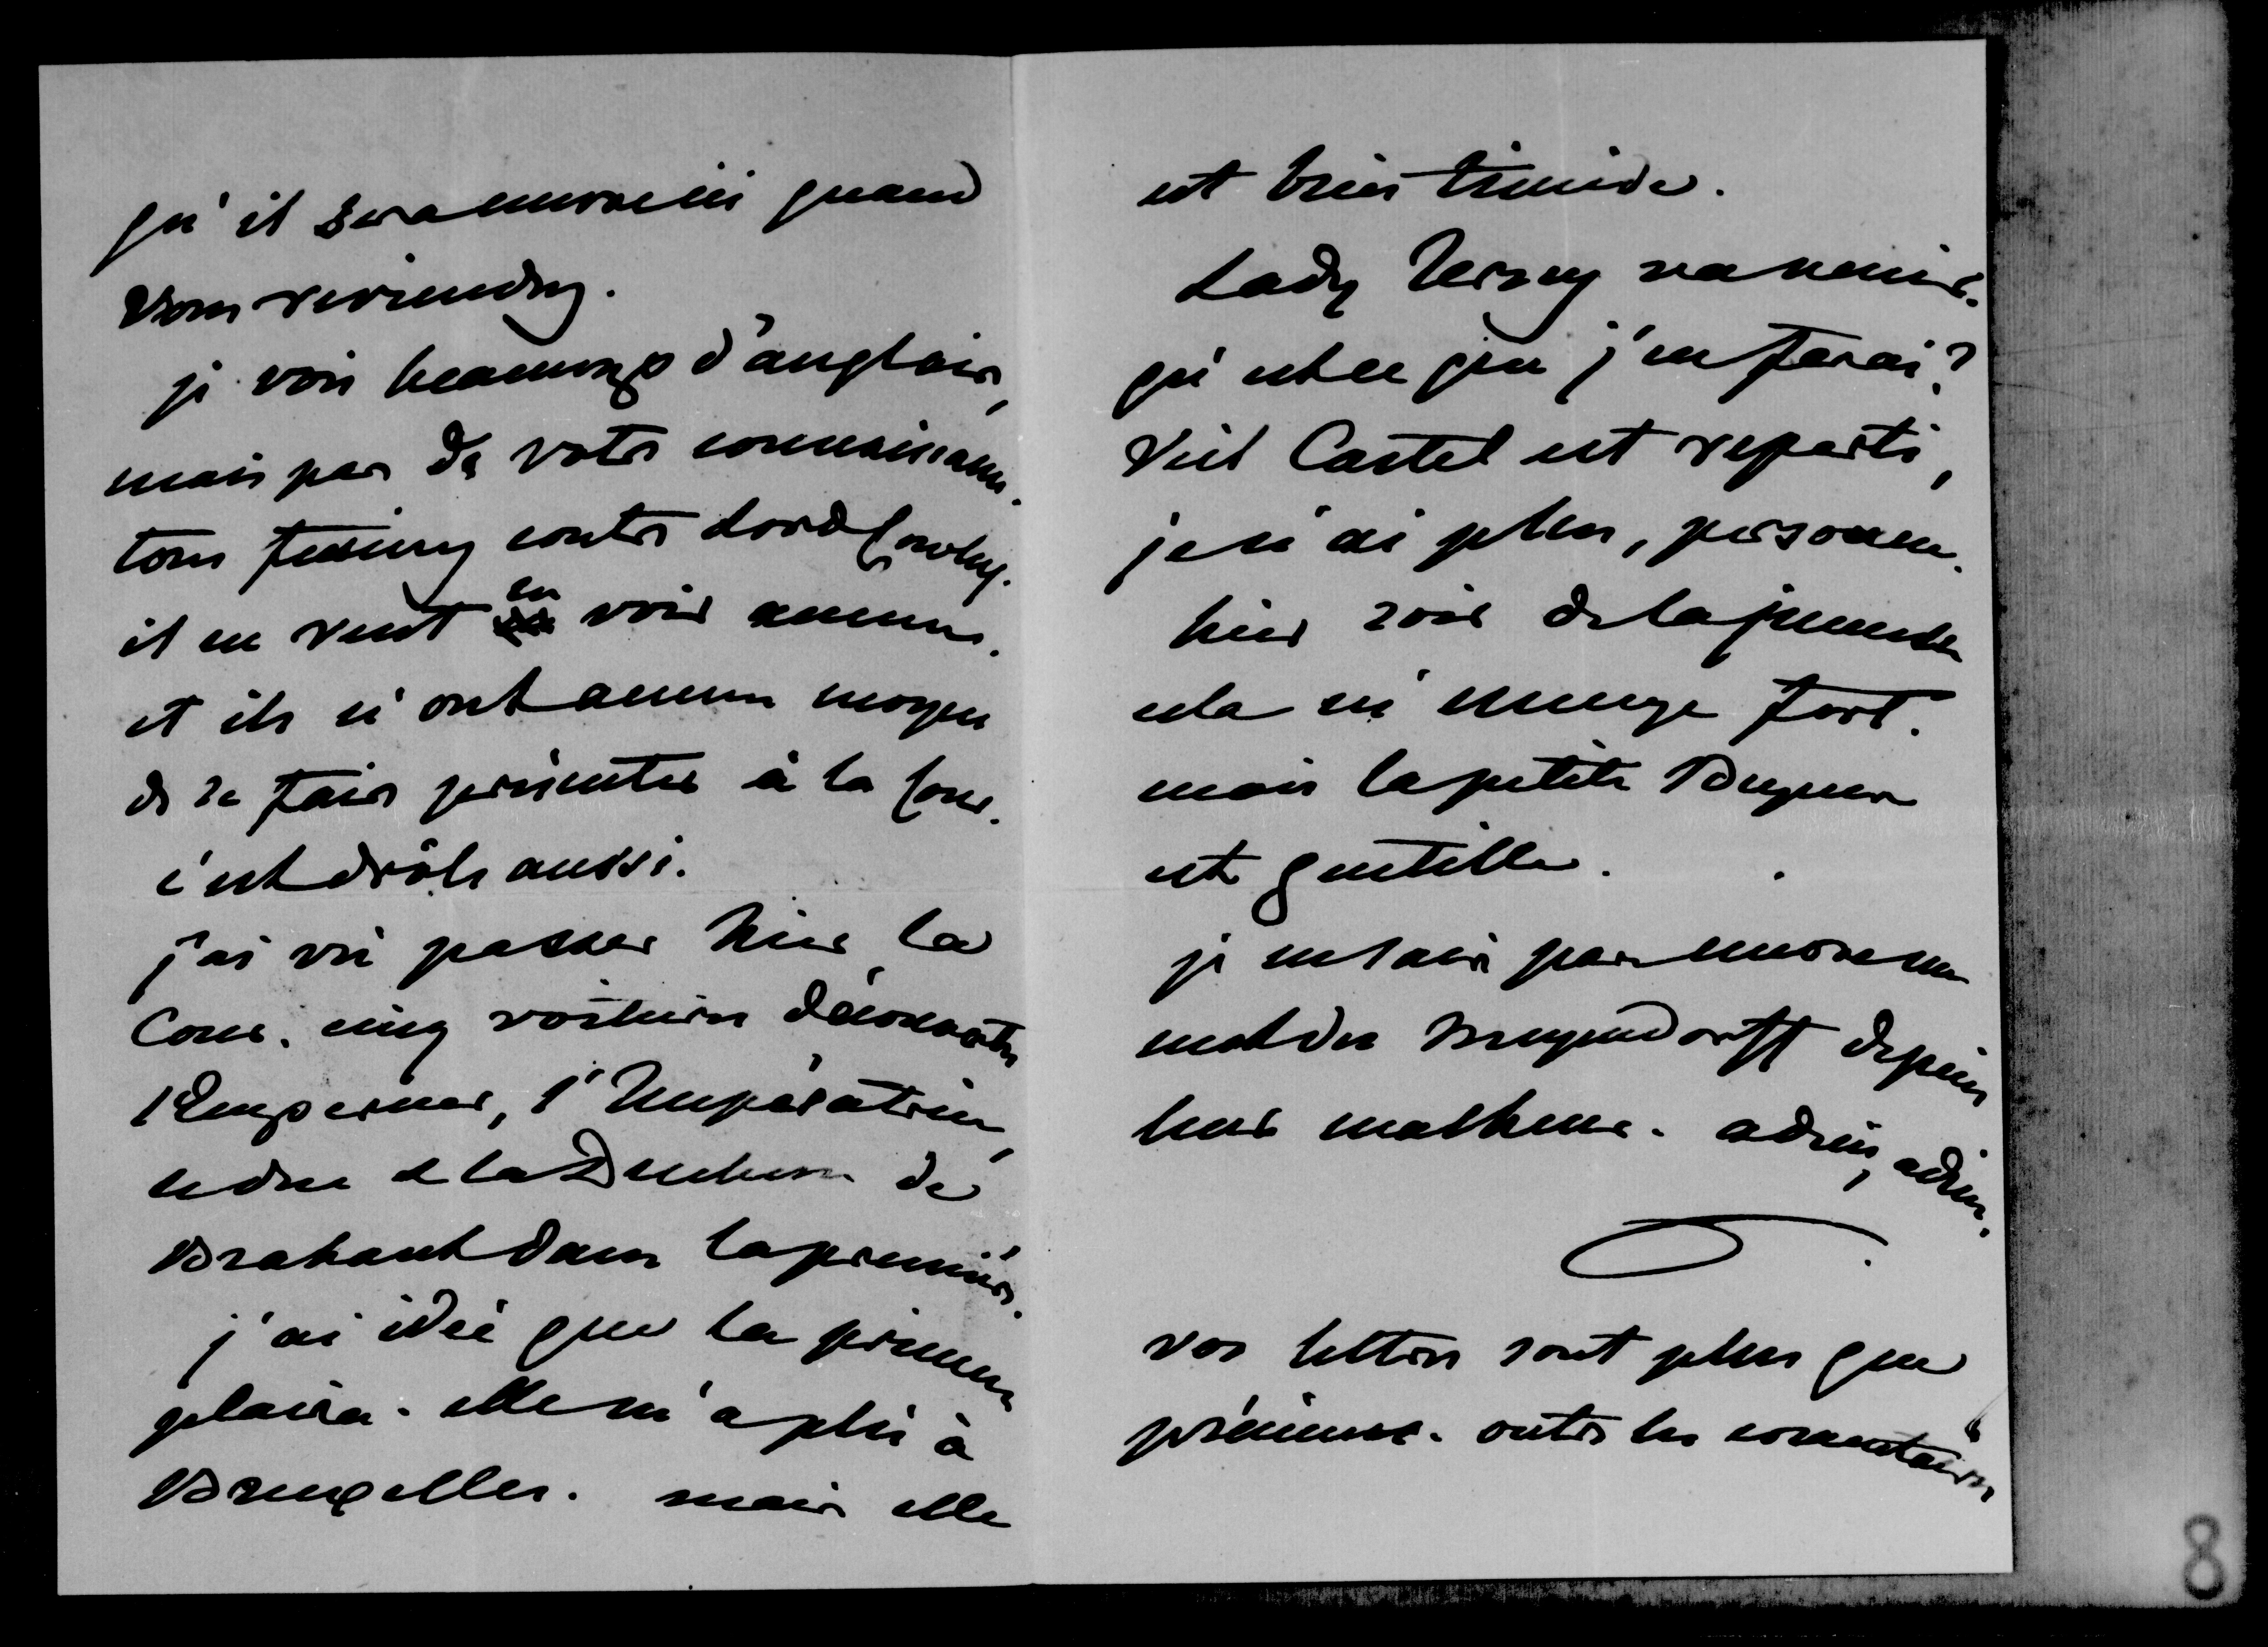 qu'il sera encore ici quand
vous reviendrez.
je vois beaucoup d'anglais,
mais pas de votre connaissance.
tous furieux contre Lord Cowley.
il ne veut en voir aucun.
et ils n'ont aucun moyen
de se faire présenter à la Cour.
c'est drôle aussi.
j'ai vu passer hier la
Cour. cinq voitures découvertes
l'Empereur, l'Impératrice,
le duc & la Duchesse de
Brabant dans la première.
j'ai idée que la princesse
plaira. elle m'a plu à
Bruxelles. mais elle
est bien timide.
Lady Jersey va venir.
qu'est ce que j'en ferai?
Viel Castel est reparti,
je n'ai plus, personne.
hier soir de la jeunesse
cela m'ennuye fort.
mais la petite
est gentille.
je ne sais pas encore un
mot des Meyendorff depuis
leur malheur. adieu, adieu.
vos lettres sont plus que
précieuses. outre les commentaires
8